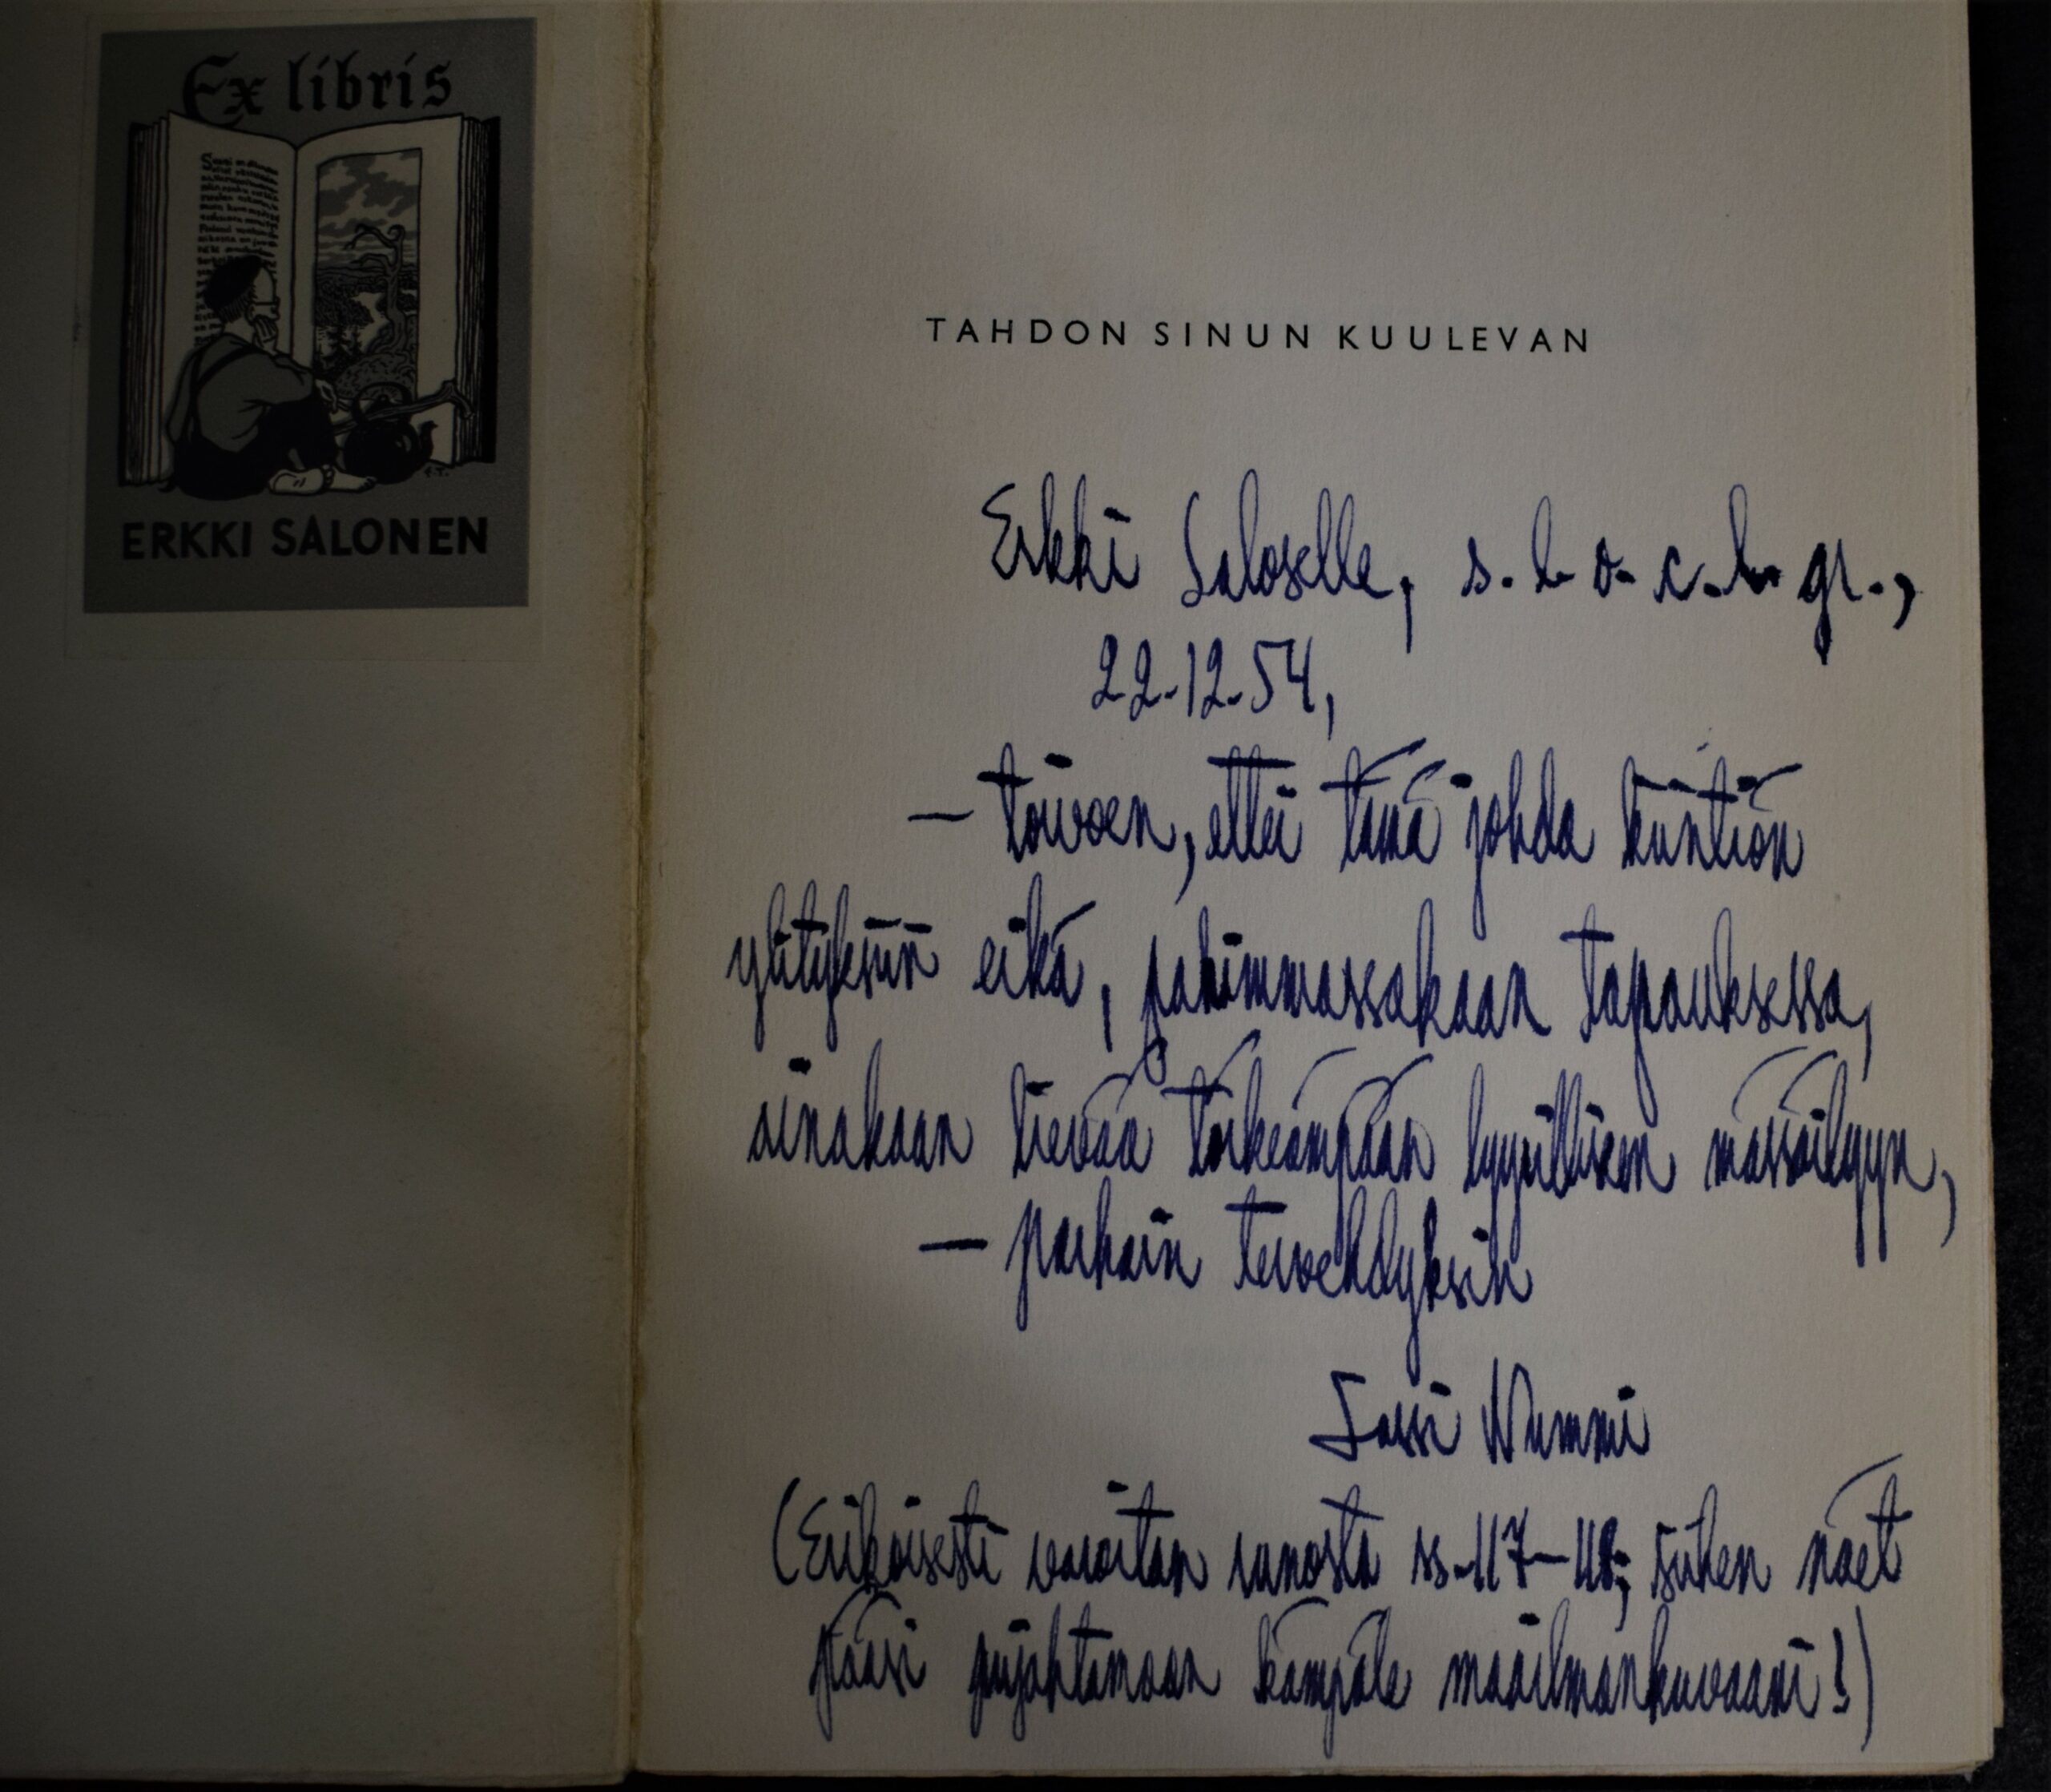 Ex libris
ERKKI SALONEN
TAHDON SINUN KUULEVAN
Erkki Saloselle, s. l. o. c. l. gr.,
22.12.54,
— toivoen, ettei tämä johda kiintiön
ylityksiin eikä, pahimmassakaan tapauksessa,
ainakaan lievää törkeämpään lyyrilliseen mässäilyyn,
— parhain tervehdyksin
Lassi Nummi
(Erikoisesti varoitan runosta ss. 117–118; siihen näet
pääsi pujahtamaan kömpälö maailmankuvaani!)